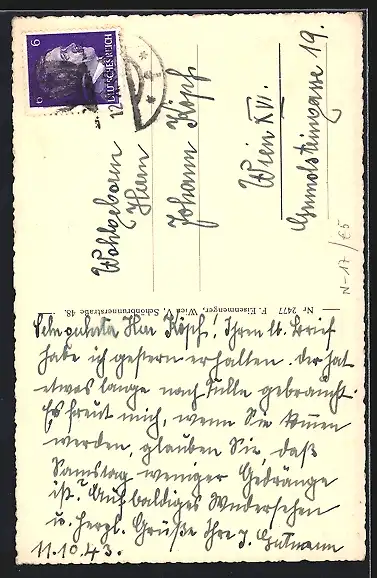 6
6
DEUTSCHES REICH
12
Wohlgeboren
Herrn
Johann Köpf
Wien XVI.
Grundsteingasse 19.
N-17/65
Nr 2477 F. Eisenmenger, Wien V., Schönbrunnerstraße 48.
Sehr geehrter Herr Köpf! Ihren lb. Brief
habe ich gestern erhalten. Der hat
etwas lange nach Tulln gebraucht.
Es freut mich, wenn Sie kommen
werden, glauben Sie, daß
Samstag weniger Gedränge
ist? Auf baldiges Wiedersehen
u. herzl. Grüße Ihre J. Gutmann
11.10.43.